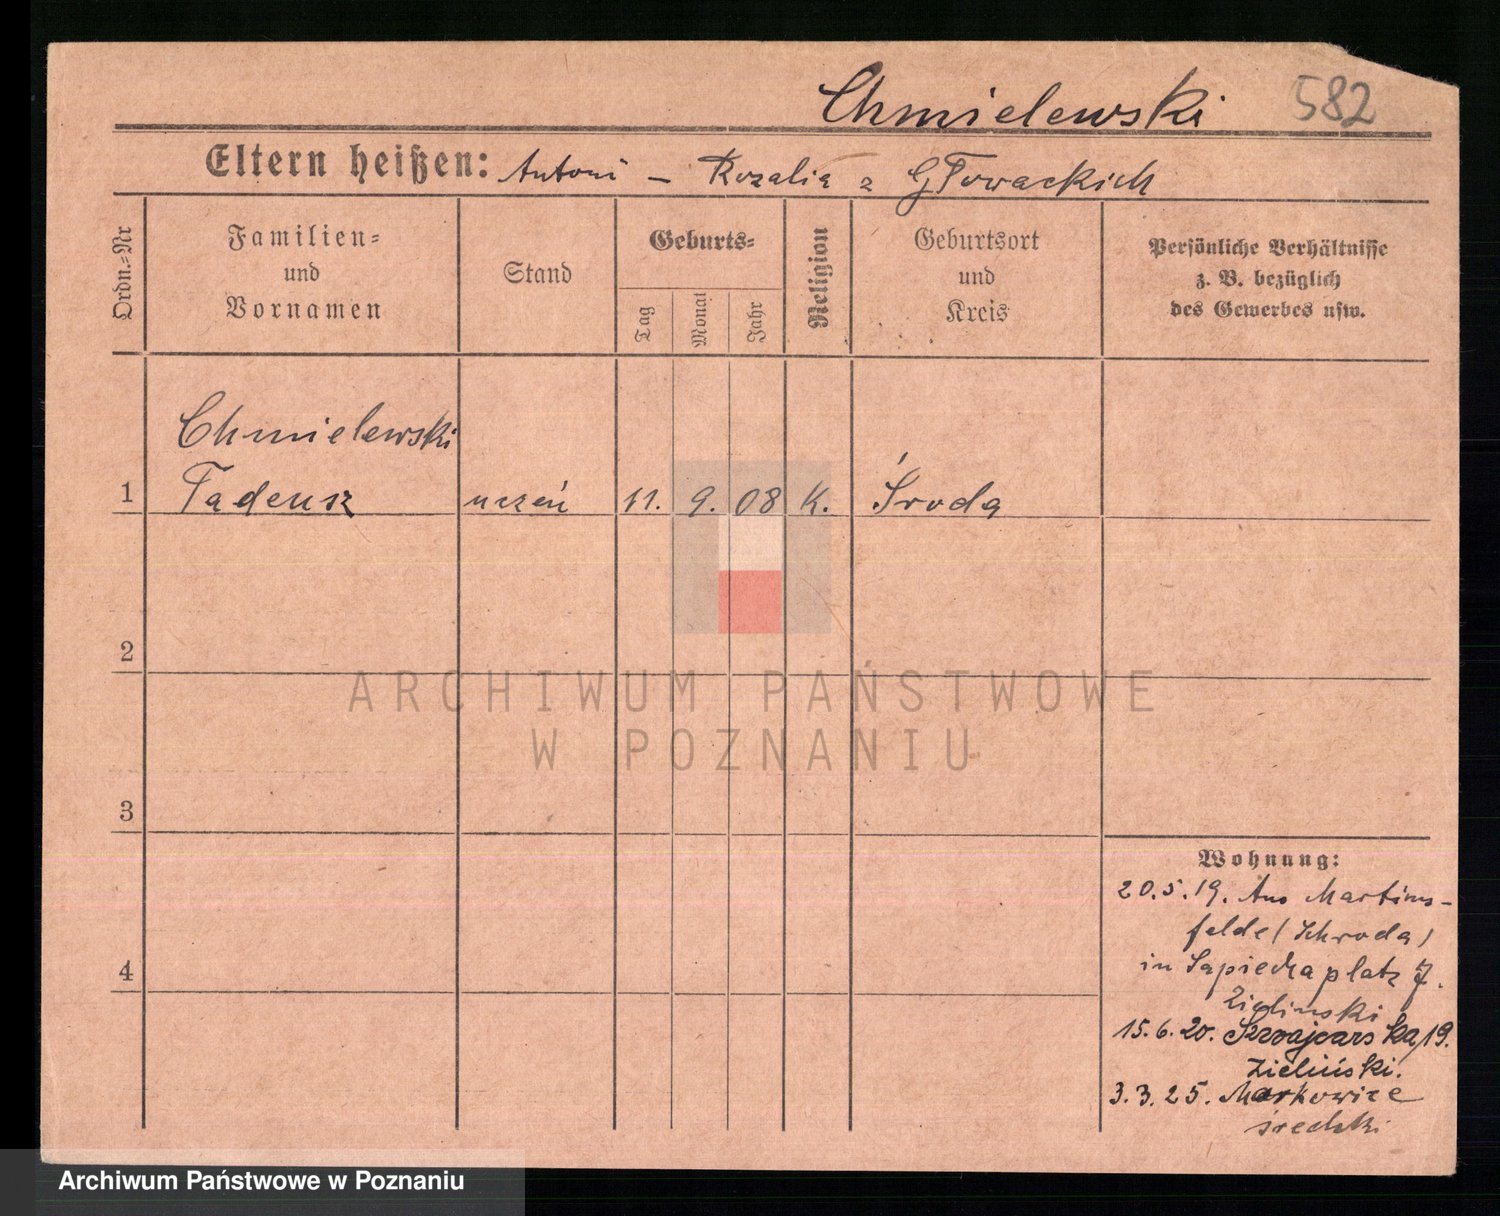 Chmielewski 582
Eltern heißen: Antoni - Rozalia z Głowackich
Ordn.-Nr
Familien-
und
Vornamen
Stand
Geburts-
Tag
Monat
Jahr
Religion
Geburtsort
und
Kreis
Persönliche Verhältnisse
z. B. bezüglich
des Gewerbes usw.
Chmielewski
1 Tadeusz uczeń 11. 9. 08 K. Środa
2
ARCHIWUM PAŃSTWOWE
W POZNANIU
3
Wohnung:
20.5.19. Aus Martins-
felde (Schroda)
4
in Sapiehaplatz 7.
Zieliński
15.6.20. Szwajcarska 19.
Zieliński.
3.3.25. Markowice
średzki
Archiwum Państwowe w Poznaniu